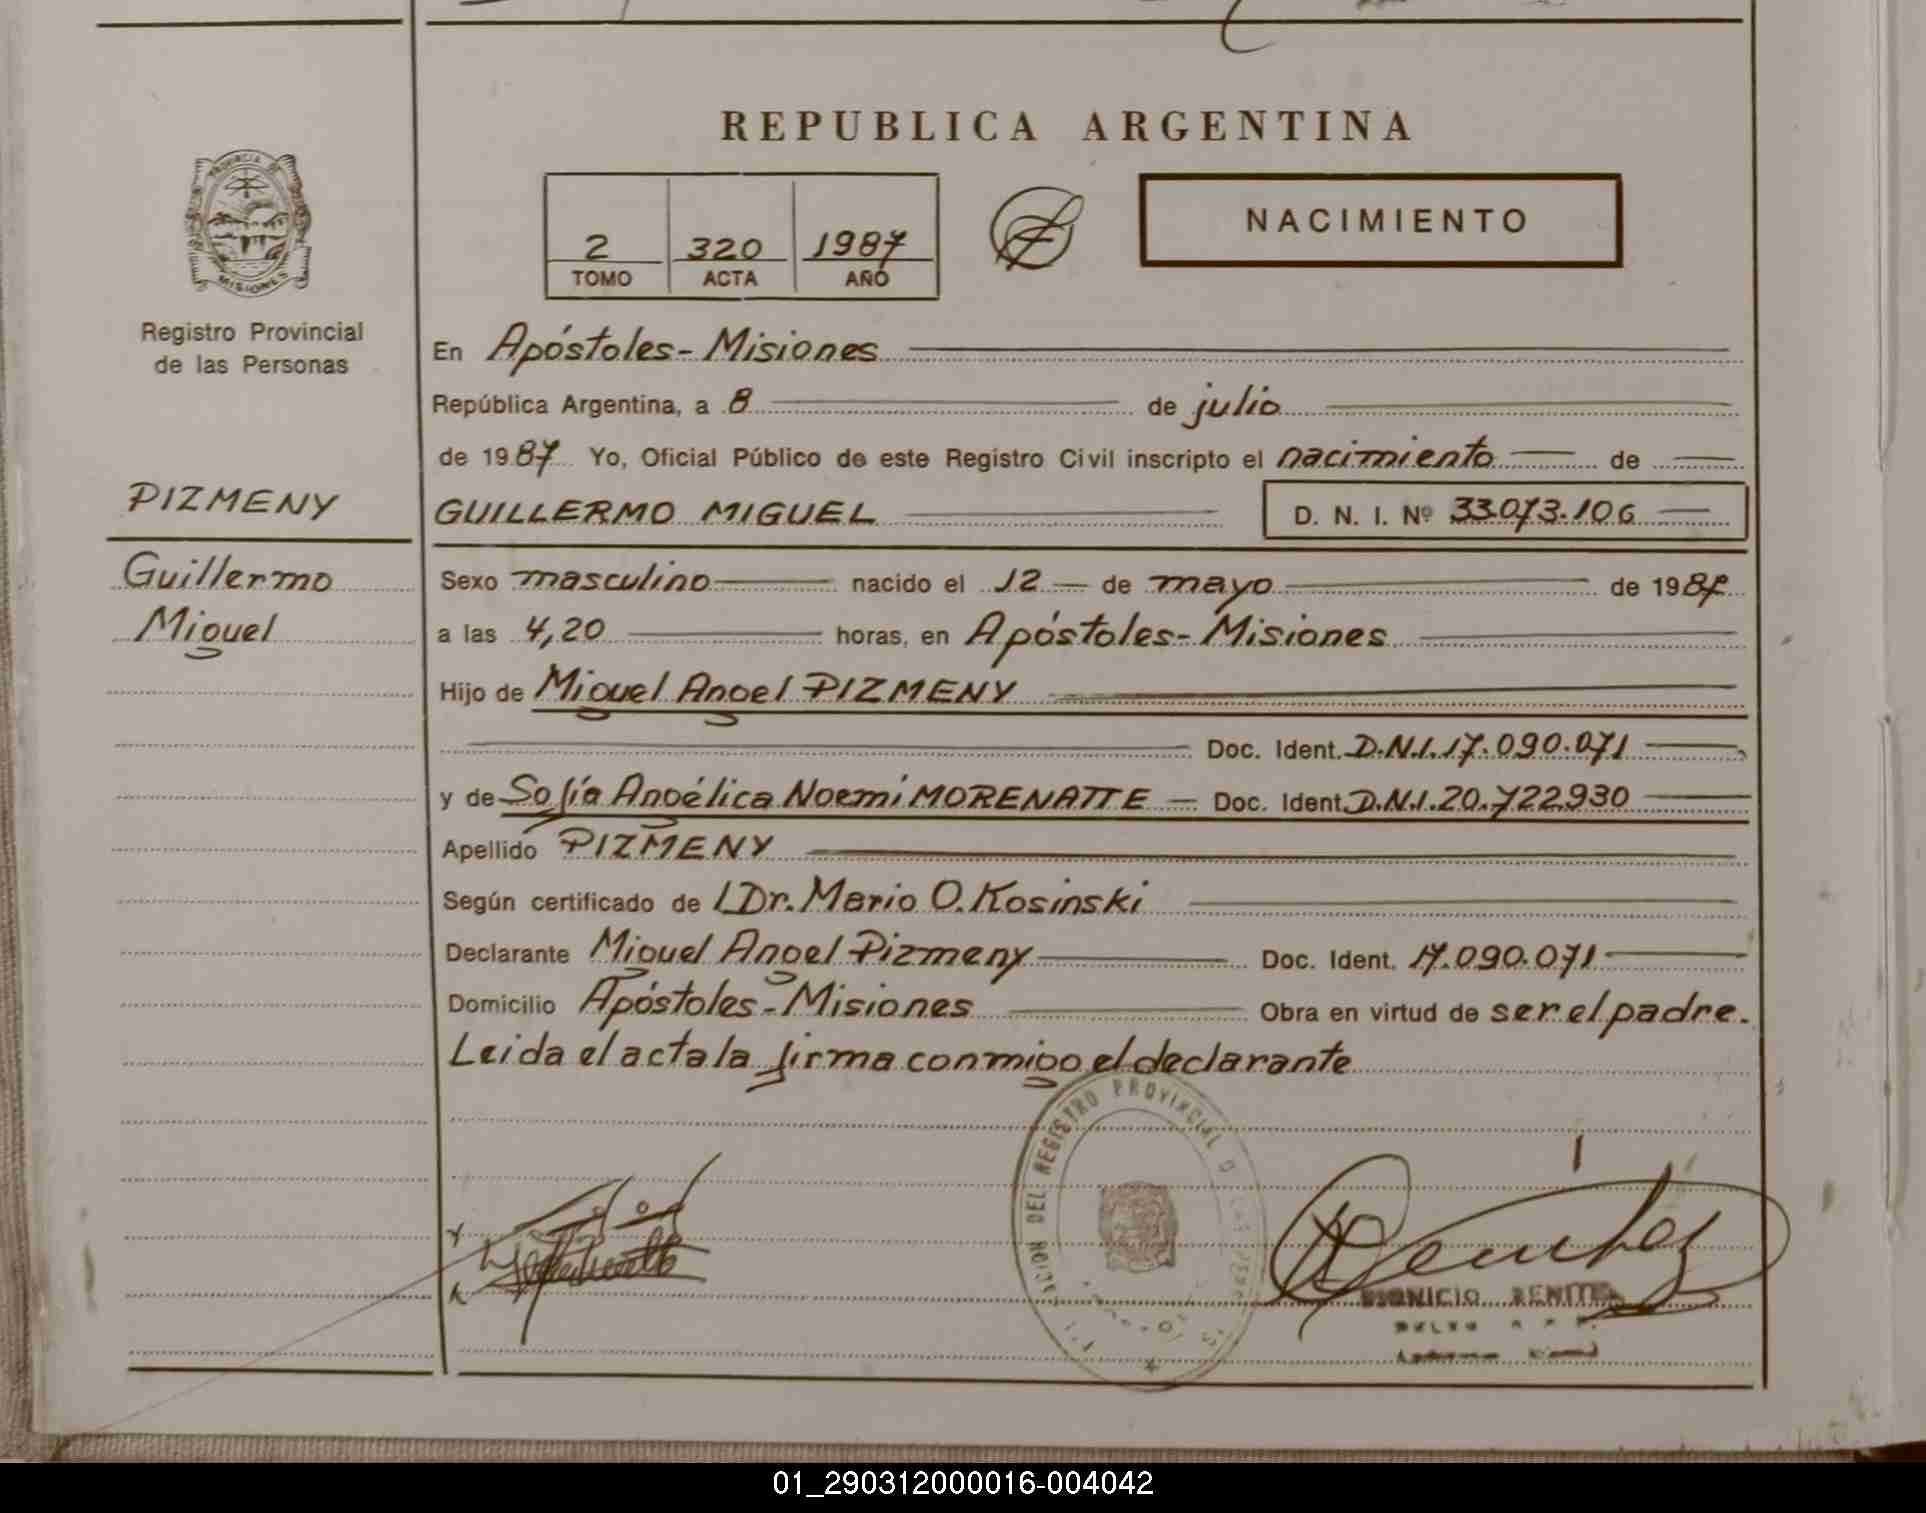 REPUBLICA ARGENTINA
PROVINCIA DE
MISIONES
Registro Provincial
de las Personas
2 320 1987
TOMO ACTA AÑO
NACIMIENTO
En Apóstoles - Misiones
República Argentina, a 8 de julio
de 1987 Yo, Oficial Público de este Registro Civil inscripto el nacimiento de
PIZMENY
GUILLERMO MIGUEL D. N. I. Nº 33.073.106
Guillermo
Miguel
Sexo masculino nacido el 12 de mayo de 1987
a las 4,20 horas, en Apóstoles - Misiones
Hijo de Miguel Angel PIZMENY
Doc. Ident. D.N.I. 17.090.071
y de Sofía Angélica Noemí MORENATTE Doc. Ident. D.N.I. 20.722.930
Apellido PIZMENY
Según certificado de Dr. Mario O. Kosinski
Declarante Miguel Angel Pizmeny Doc. Ident. 17.090.071
Domicilio Apóstoles - Misiones Obra en virtud de ser el padre.
Leida el acta la firma conmigo el declarante
DEL REGISTRO PROVINCIAL
Benítez
DIONICIO BENITEZ
01_290312000016-004042